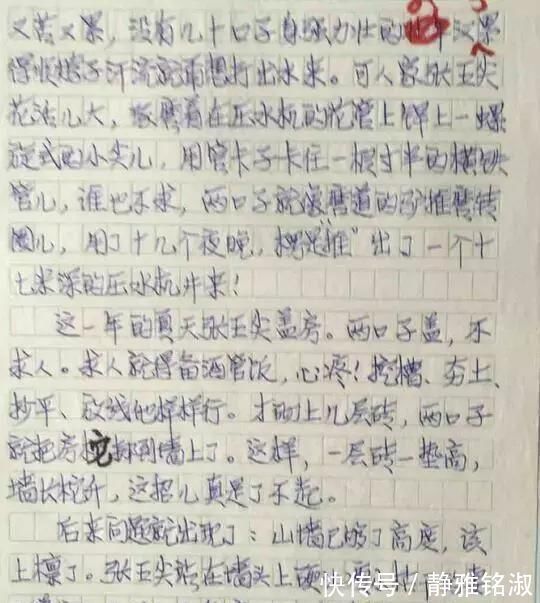 又苦又累，没有几十口子身强力壮的汉累
得顺搭子汗流就甭想打出水来。可人家张玉尖
花活儿大，琢磨着在压水机的花管上焊上一螺
旋式的小尖儿，用管卡子卡住一根寸半的横铁
管儿，谁也不求，两口子就像磨道的驴推磨转
圈儿，用了十几个夜晚，楞是"推"出了一个十
七米深的压水机井来！
这一年的夏天张玉尖盖房。两口子盖，不
求人。求人就得备酒管饭，心疼！挖槽、夯土、
抄平、放线他样样行。才砌上几层砖，两口子
就把房柁抬到墙上了。这样，一层砖一垫高，
墙长柁升，这招儿真是了不起。
后来问题就出现了：山墙已够了高度，该
上檩了。张玉尖站在墙头上
快传号／静雅铭淑